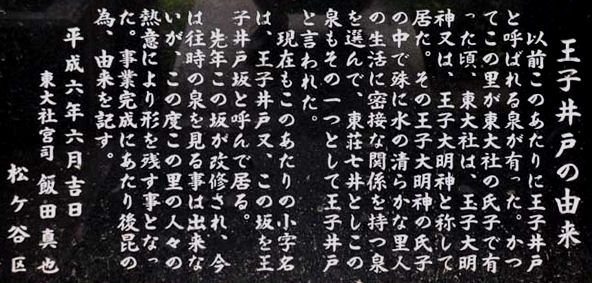 王子井戸の由来
以前このあたりに王子井戸
と呼ばれる泉が有った。かつ
てこの里が東大社の氏子で有
った頃、東大社は、王子大明
神又は、王子大明神と称して
居た。その王子大明神の氏子
の中で殊に水の清らかな里人
の生活に密接な関係を持つ泉
を選んで、東荘七井としこの
泉もその一つとして王子井戸
と言われた。
現在もこのあたりの小字名
は、王子井戸又、この坂を王
子井戸坂と呼んで居る。
先年この坂が改修され、今
は往時の泉を見る事は出来な
いが、この度この里の人々の
熱意により形を残す事となっ
た。事業完成にあたり後昆の
為、由来を記す。
平成六年六月吉日
東大社宮司 飯田真也
松ケ谷区